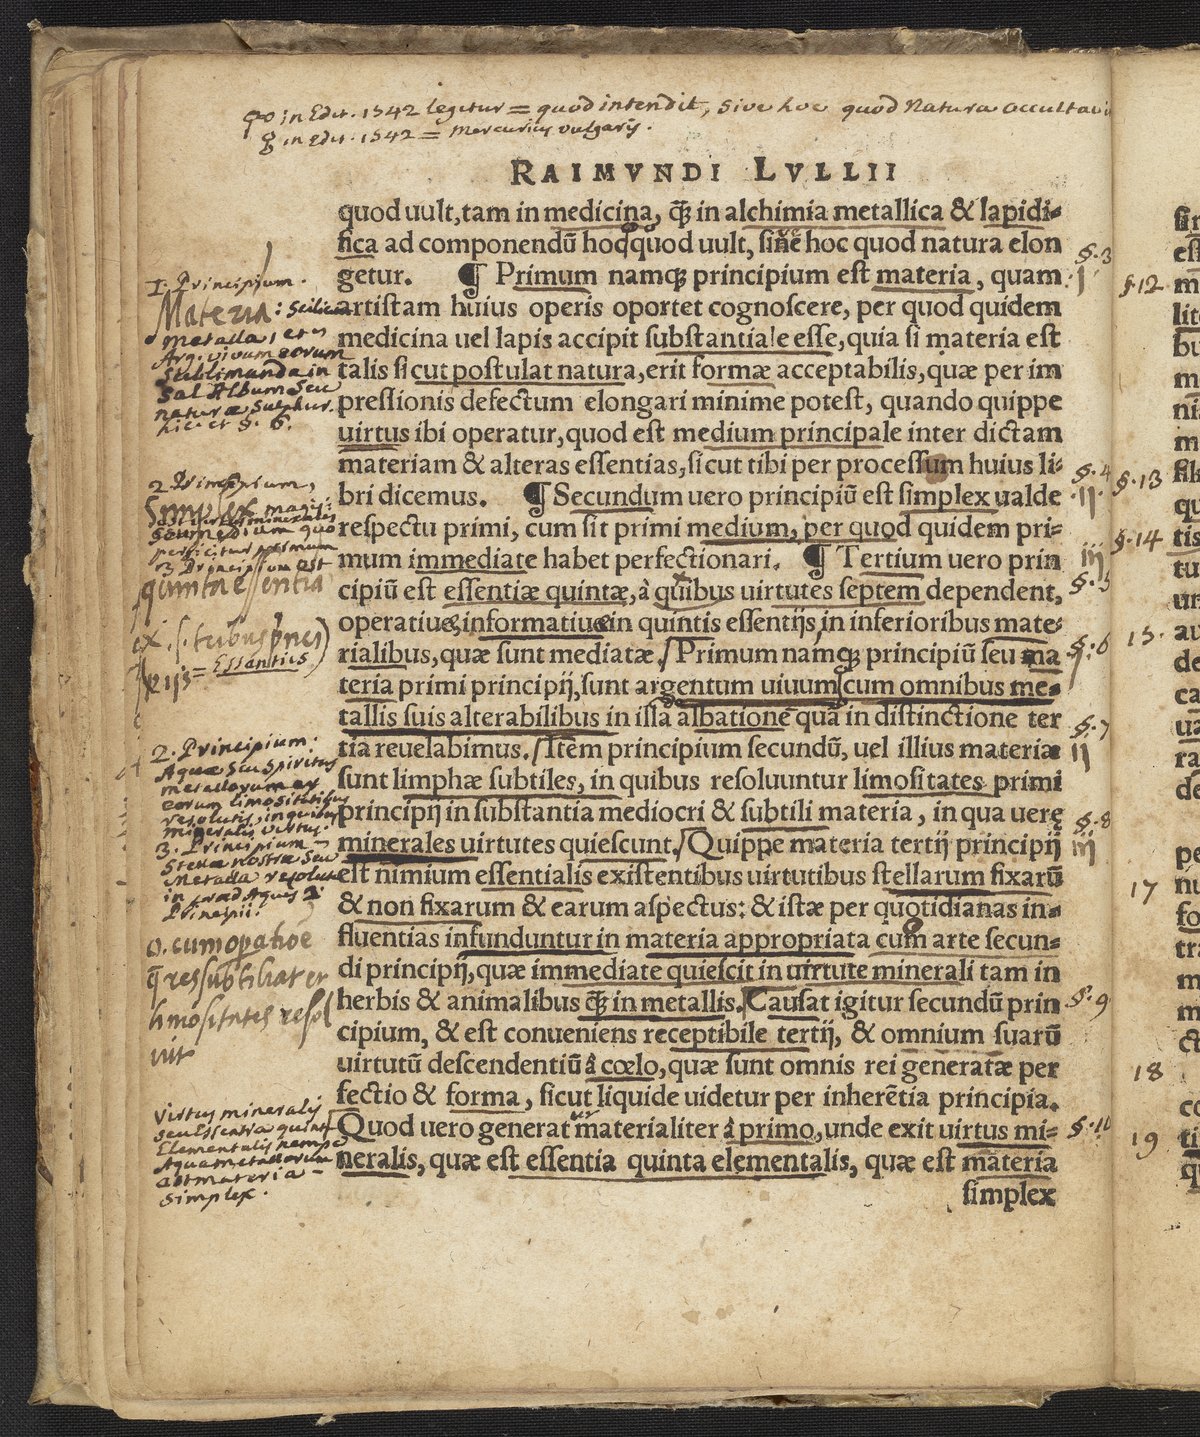 in Edit. 1542 legitur = quod intendit, sive hoc quod Natura occultavi
in Edit. 1542 = Mercurius vulgaris.
RAIMVNDI LVLLII
quod uult, tam in medicina, q̃ꝫ in alchimia metallica & lapidi-
fica ad componendũ hoc quod uult, sine hoc quod natura elon
getur. ¶ Primum namqꝫ principium est materia, quam
artistam huius operis oportet cognoscere, per quod quidem
medicina uel lapis accipit substantiale esse, quia si materia est
talis sicut postulat natura, erit formæ acceptabilis, quæ per im
pressionis defectum elongari minime potest, quando quippe
uirtus ibi operatur, quod est medium principale inter dictam
materiam & alteras essentias, sicut tibi per processum huius li-
bri dicemus. ¶ Secundum uero principiũ est simplex ualde
respectu primi, cum sit primi medium, per quod quidem pri-
mum immediate habet perfectionari. ¶ Tertium uero prin
cipiũ est essentiæ quintæ, à quibus uirtutes septem dependent,
operatiuę, informatiuę in quintis essentijs in inferioribus mate-
rialibus, quæ sunt mediatæ. Primum namqꝫ principiũ seu ma
teria primi principij, sunt argentum uiuum cum omnibus me-
tallis suis alterabilibus in illa albatione quã in distinctione ter
tia reuelabimus. Item principium secundũ, uel illius materiæ
sunt limphæ subtiles, in quibus resoluuntur limositates primi
principij in substantia mediocri & subtili materia, in qua uerę
minerales uirtutes quiescunt. Quippe materia tertij principij
est nimium essentialis existentibus uirtutibus stellarum fixarũ
& non fixarum & earum aspectus: & istæ per quotidianas in-
fluentias infunduntur in materia appropriata cum arte secun-
di principij, quæ immediate quiescit in uirtute minerali tam in
herbis & animalibus q̃ꝫ in metallis. Causat igitur secundũ prin
cipium, & est conueniens receptibile tertij, & omnium suarũ
uirtutũ descendentiũ à cœlo, quæ sunt omnis rei generatæ per
fectio & forma, sicut liquide uidetur per inherẽtia principia.
Quod uero generat materialiter à primo, unde exit uirtus mi-
neralis, quæ est essentia quinta elementalis, quæ est materia
simplex
1. Principium.
Materia: Scilicet
metalla, et
Arg. vivum eorum
Sublimanda in
Sal Album Seu
naturæ Sulphur.
hic et §. 6.
2 Principium,
Simplex
perficitur primum
3 Principium est
quinta essentia
= Essentiis
2. Principium:
Aquæ Seu Spiritus
metallorum ex
eorum limositatibus
resolutis, in quibus
mineralis virtus.
3. Principium =
Stella nostra Seu
metalla resoluta
Principii.
cum opatioe
limositates resol
vit
Virtus mineralis
seu Essentia quinta
Elementalis nempe
Aqua metallorum
est materia =
simplex.
§.3
I
§.4
II.
iij
§.5
§.6
I
§.7
II
§.8
iij
§.9
§.10
§12
§.13
§.14
15.
17
18
19